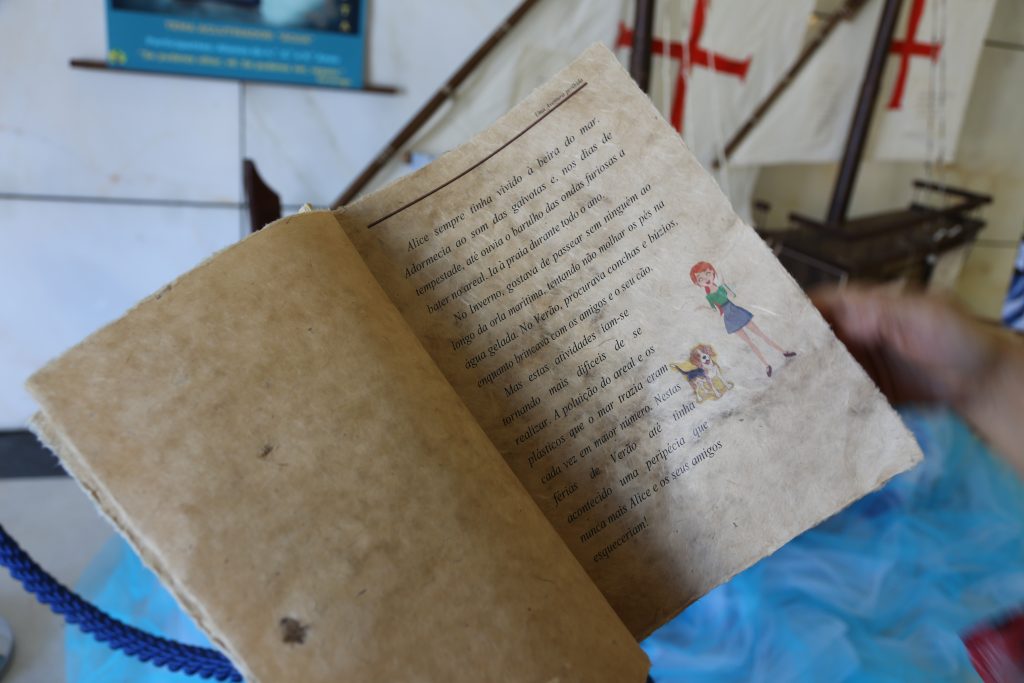 Uma Aventura
Alice sempre tinha vivido à beira do mar.
Adormecia ao som das gaivotas e, nos dias de
tempestade, até ouvia o barulho das ondas furiosas a
bater no areal. Ia à praia durante todo o ano.
No Inverno, gostava de passear sem ninguém ao
longo da orla marítima, tentando não molhar os pés na
água gelada. No Verão, procurava conchas e búzios,
enquanto brincava com os amigos e o seu cão.
Mas estas atividades iam-se
tornando mais difíceis de se
realizar. A poluição do areal e os
plásticos que o mar trazia eram
cada vez em maior número. Nestas
férias de Verão até tinha
acontecido uma peripécia que
nunca mais Alice e os seus amigos
esqueceriam!
1